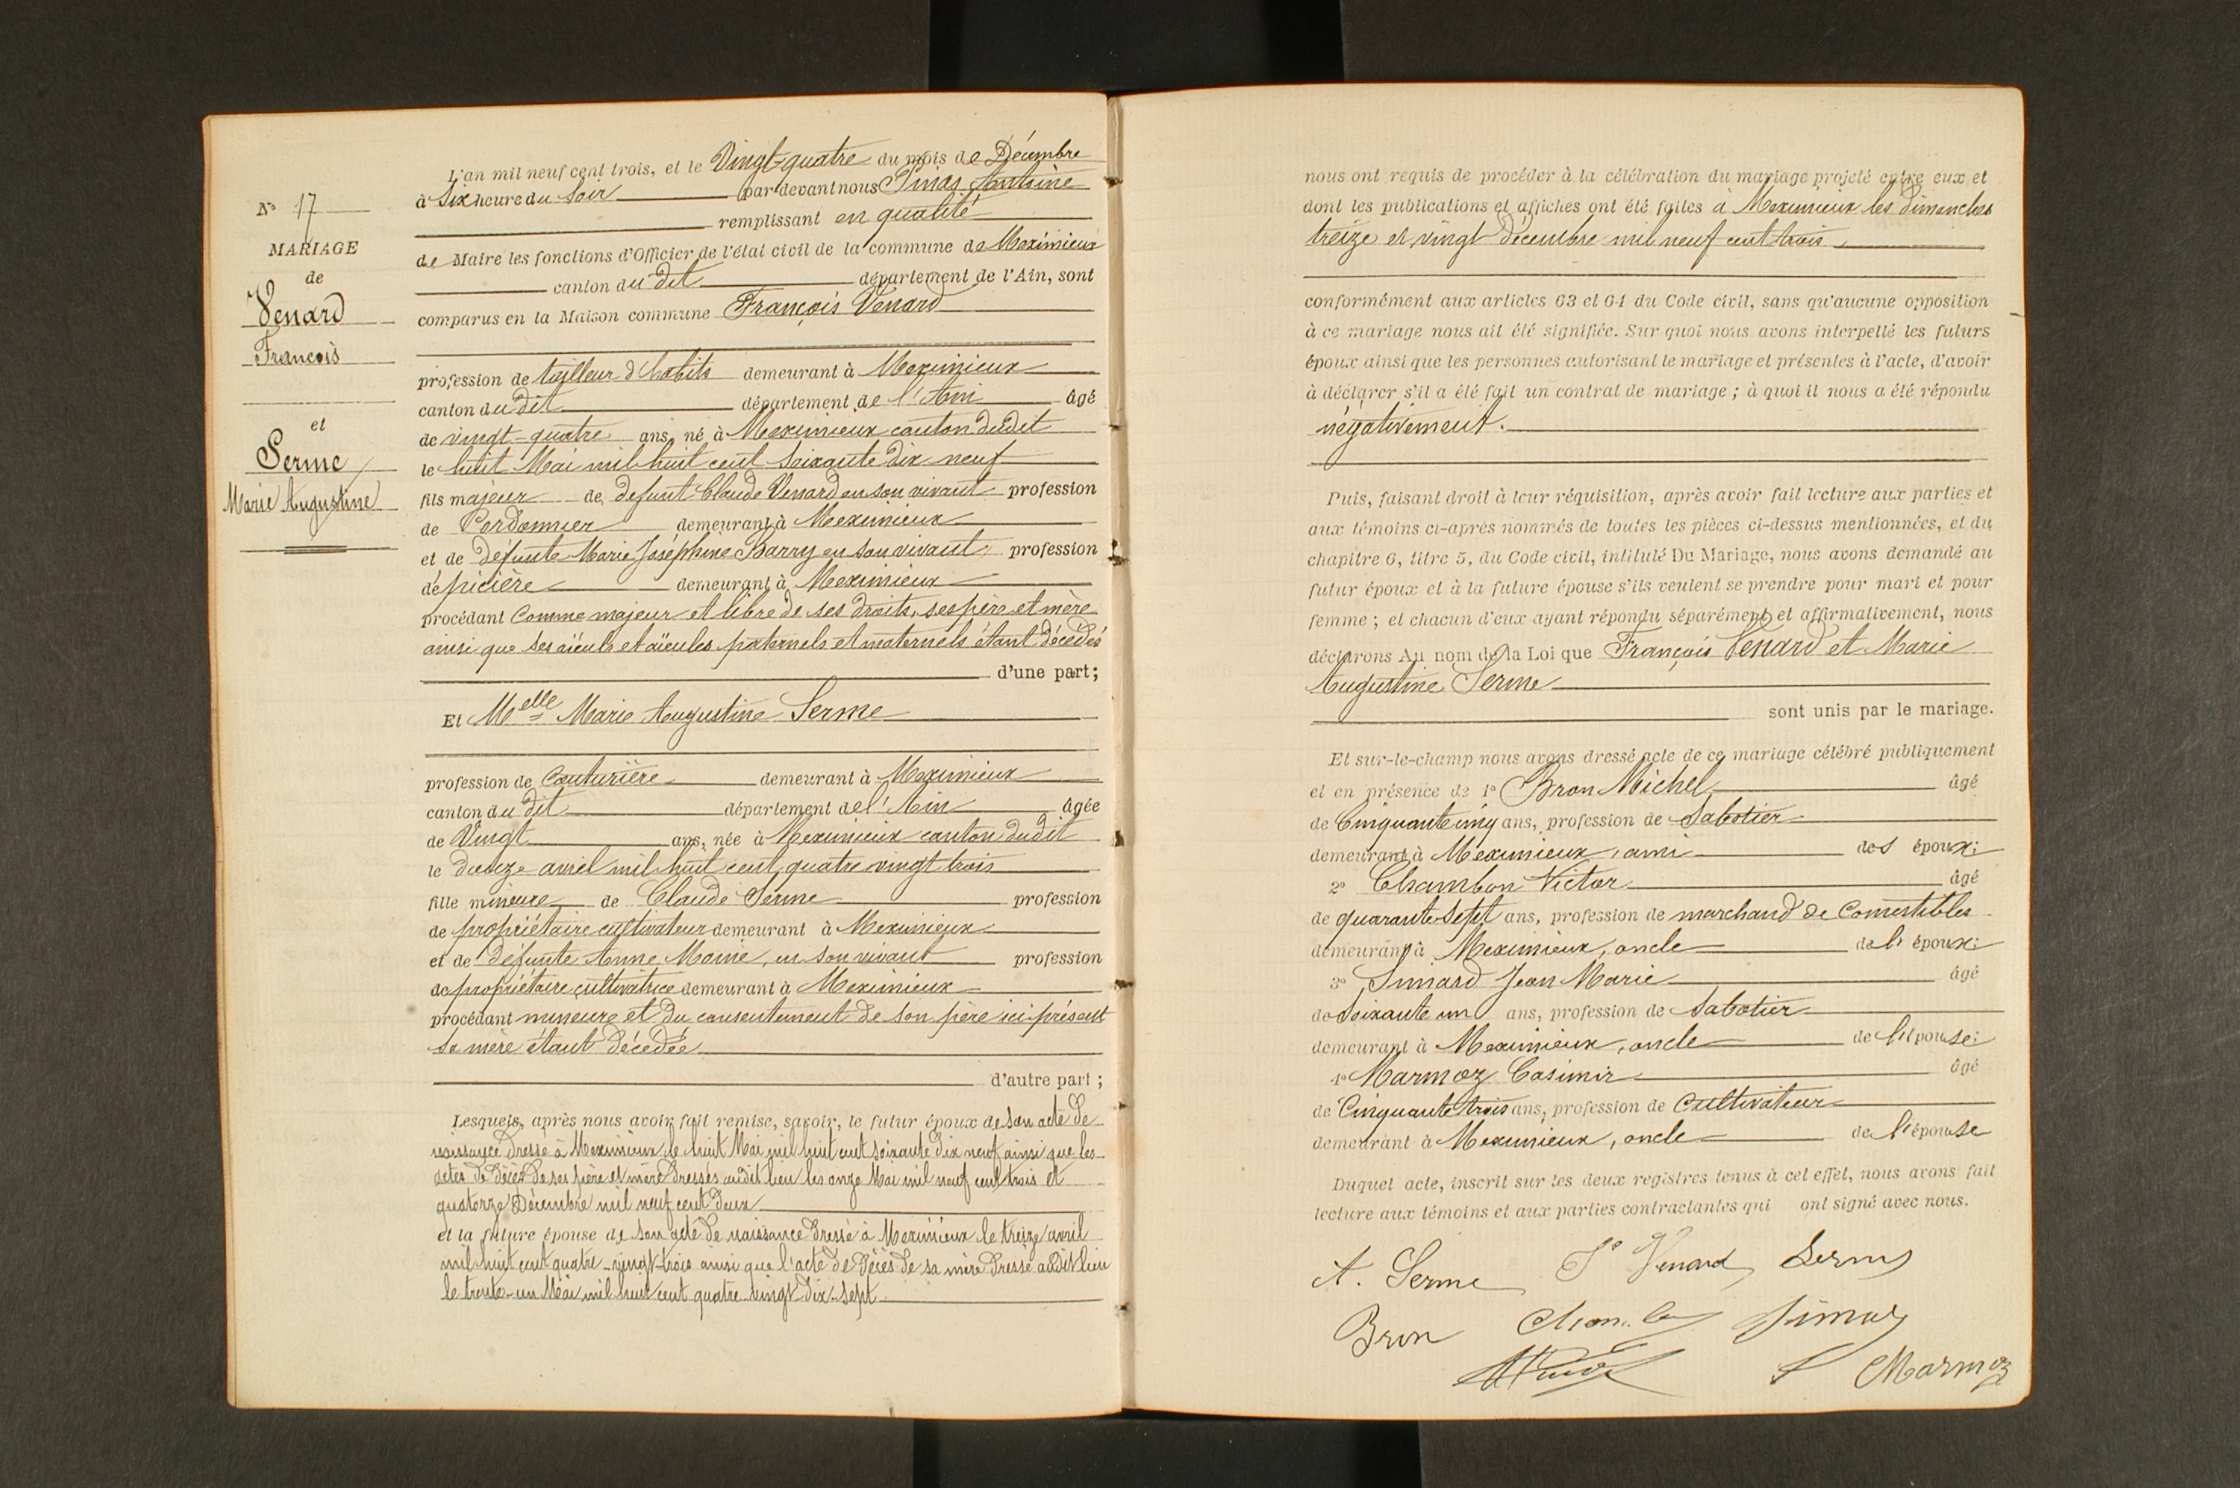 N° 17
MARIAGE
de
Venard
François
et
Serme
Marie Augustine
L'an mil neuf cent trois, et le Vingt-quatre du mois de Décembre
à Six heure du Soir par devant nous Pinas Antoine
remplissant en qualité
de Maire les fonctions d'Officier de l'état civil de la commune de Meximieux
canton du dit département de l'Ain, sont
comparus en la Maison commune François Venard
profession de tailleur d'habits demeurant à Meximieux
canton du dit département de l'Ain âgé
de vingt-quatre ans, né à Meximieux canton dudit
le huit Mai mil huit cent soixante dix neuf
fils majeur de défunt Claude Venard en son vivant profession
de Cordonnier demeurant à Meximieux
et de défunte Marie Joséphine Barry en son vivant profession
d'épicière demeurant à Meximieux
procédant comme majeur et libre de ses droits, ses père et mère
ainsi que ses aïeuls et aïeules paternels et maternels étant décédés
d'une part;
Et Melle Marie Augustine Serme
profession de Couturière demeurant à Meximieux
canton du dit département de l'Ain âgée
de Vingt ans, née à Meximieux canton dudit
le douze avril mil huit cent quatre vingt trois
fille mineure de Claude Serme profession
de propriétaire cultivateur demeurant à Meximieux
et de défunte Anne Moine, en son vivant profession
de propriétaire cultivatrice demeurant à Meximieux
procédant mineure et du consentement de son père ici présent
sa mère étant décédée
d'autre part;
Lesquels, après nous avoir fait remise, savoir, le futur époux de son acte de
naissance dressé à Meximieux le huit Mai mil huit cent soixante dix neuf ainsi que les
actes de décès de ses père et mère dressés audit lieu les onze Mai mil neuf cent trois et
quatorze Décembre mil neuf cent deux
et la future épouse de son acte de naissance dressé à Meximieux le treize avril
mil huit cent quatre-vingt-trois ainsi que l'acte de décès de sa mère dressé audit lieu
le trente-un Mai mil huit cent quatre vingt dix-sept
nous ont requis de procéder à la célébration du mariage projeté entre eux et
dont les publications et affiches ont été faites à Meximieux les dimanches
treize et vingt décembre mil neuf cent trois
conformément aux articles 63 et 64 du Code civil, sans qu'aucune opposition
à ce mariage nous ait été signifiée. Sur quoi nous avons interpellé les futurs
époux ainsi que les personnes autorisant le mariage et présentes à l'acte, d'avoir
à déclarer s'il a été fait un contrat de mariage; à quoi il nous a été répondu
négativement.
Puis, faisant droit à leur réquisition, après avoir fait lecture aux parties et
aux témoins ci-après nommés de toutes les pièces ci-dessus mentionnées, et du
chapitre 6, titre 5, du Code civil, intitulé Du Mariage, nous avons demandé au
futur époux et à la future épouse s'ils veulent se prendre pour mari et pour
femme; et chacun d'eux ayant répondu séparément et affirmativement, nous
déclarons Au nom de la Loi que François Venard et Marie
Augustine Serme
sont unis par le mariage.
Et sur-le-champ nous avons dressé acte de ce mariage célébré publiquement
et en présence de 1° Bron Michel âgé
de Cinquante cinq ans, profession de Sabotier
demeurant à Meximieux, ami des époux;
2° Chambon Victor âgé
de quarante-sept ans, profession de marchand de Comestibles
demeurant à Meximieux, oncle de l' époux;
3° Simard Jean Marie âgé
de Soixante un ans, profession de Sabotier
demeurant à Meximieux, oncle de l'épouse;
4° Marmoz Casimir âgé
de Cinquante trois ans, profession de Cultivateur
demeurant à Meximieux, oncle de l'épouse
Duquel acte, inscrit sur les deux registres tenus à cet effet, nous avons fait
lecture aux témoins et aux parties contractantes qui ont signé avec nous.
A. Serme Fs Venard Serme
Bron
Marmoz